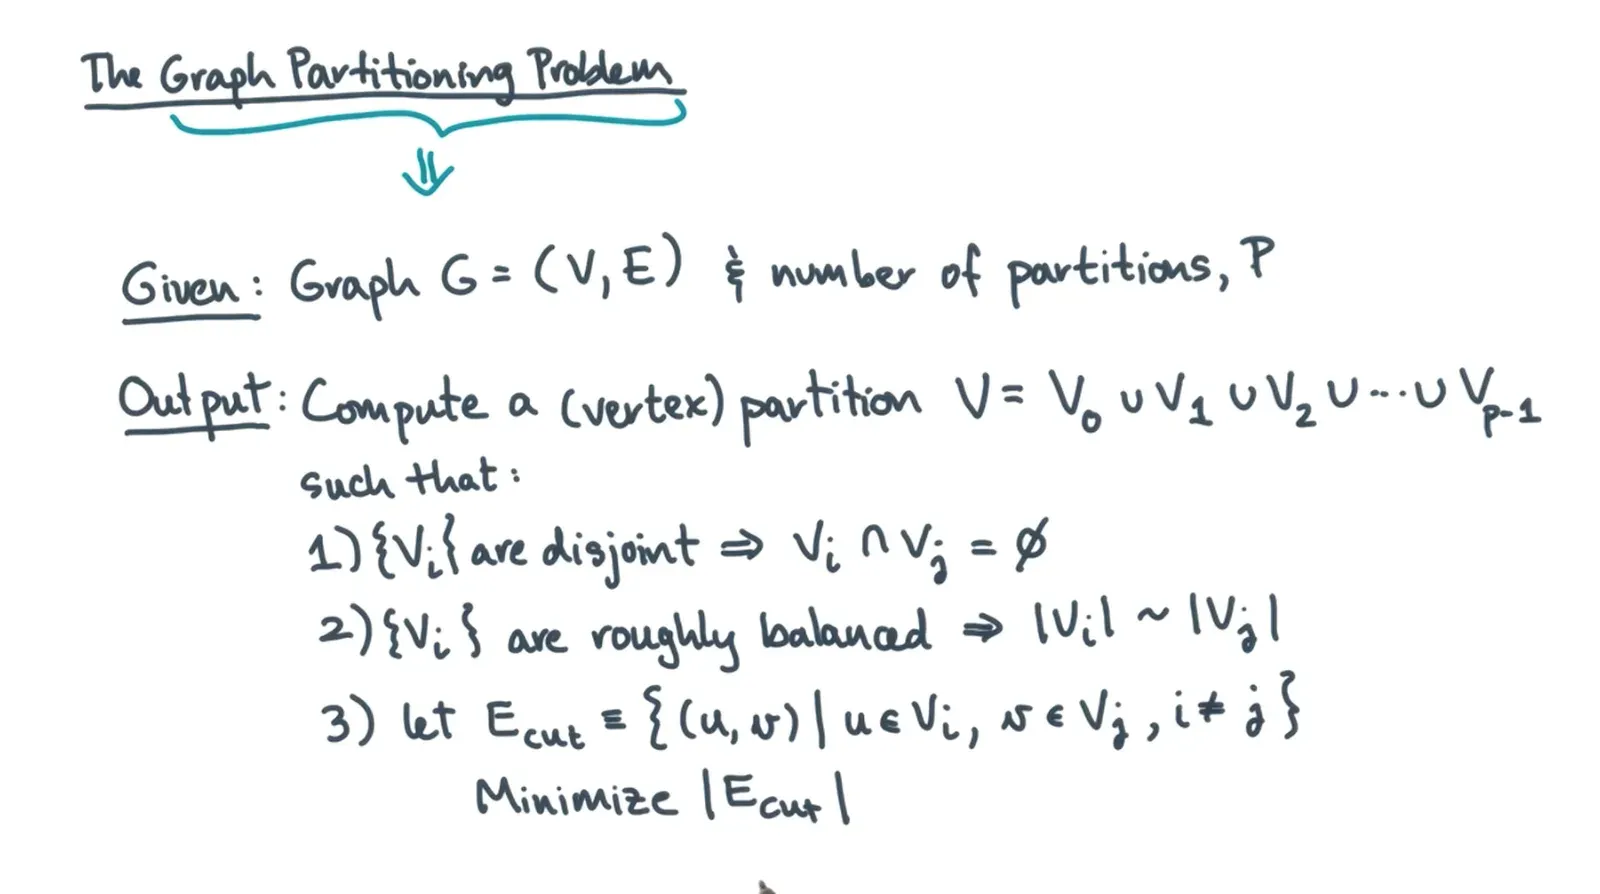 The Graph Partitioning Problem
Given: Graph G = (V, E) & number of partitions, P
Output: Compute a (vertex) partition V = V₀ ∪ V₁ ∪ V₂ ∪ ... ∪ Vₚ₋₁
such that:
1) {Vᵢ} are disjoint ⇒ Vᵢ ∩ Vⱼ = ∅
2) {Vᵢ} are roughly balanced ⇒ |Vᵢ| ~ |Vⱼ|
3) let E_cut ≡ {(u, v) | u ∈ Vᵢ, v ∈ Vⱼ, i ≠ j}
Minimize |E_cut|